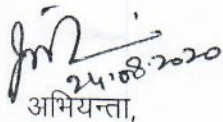 24.08.2020
अभियन्ता,